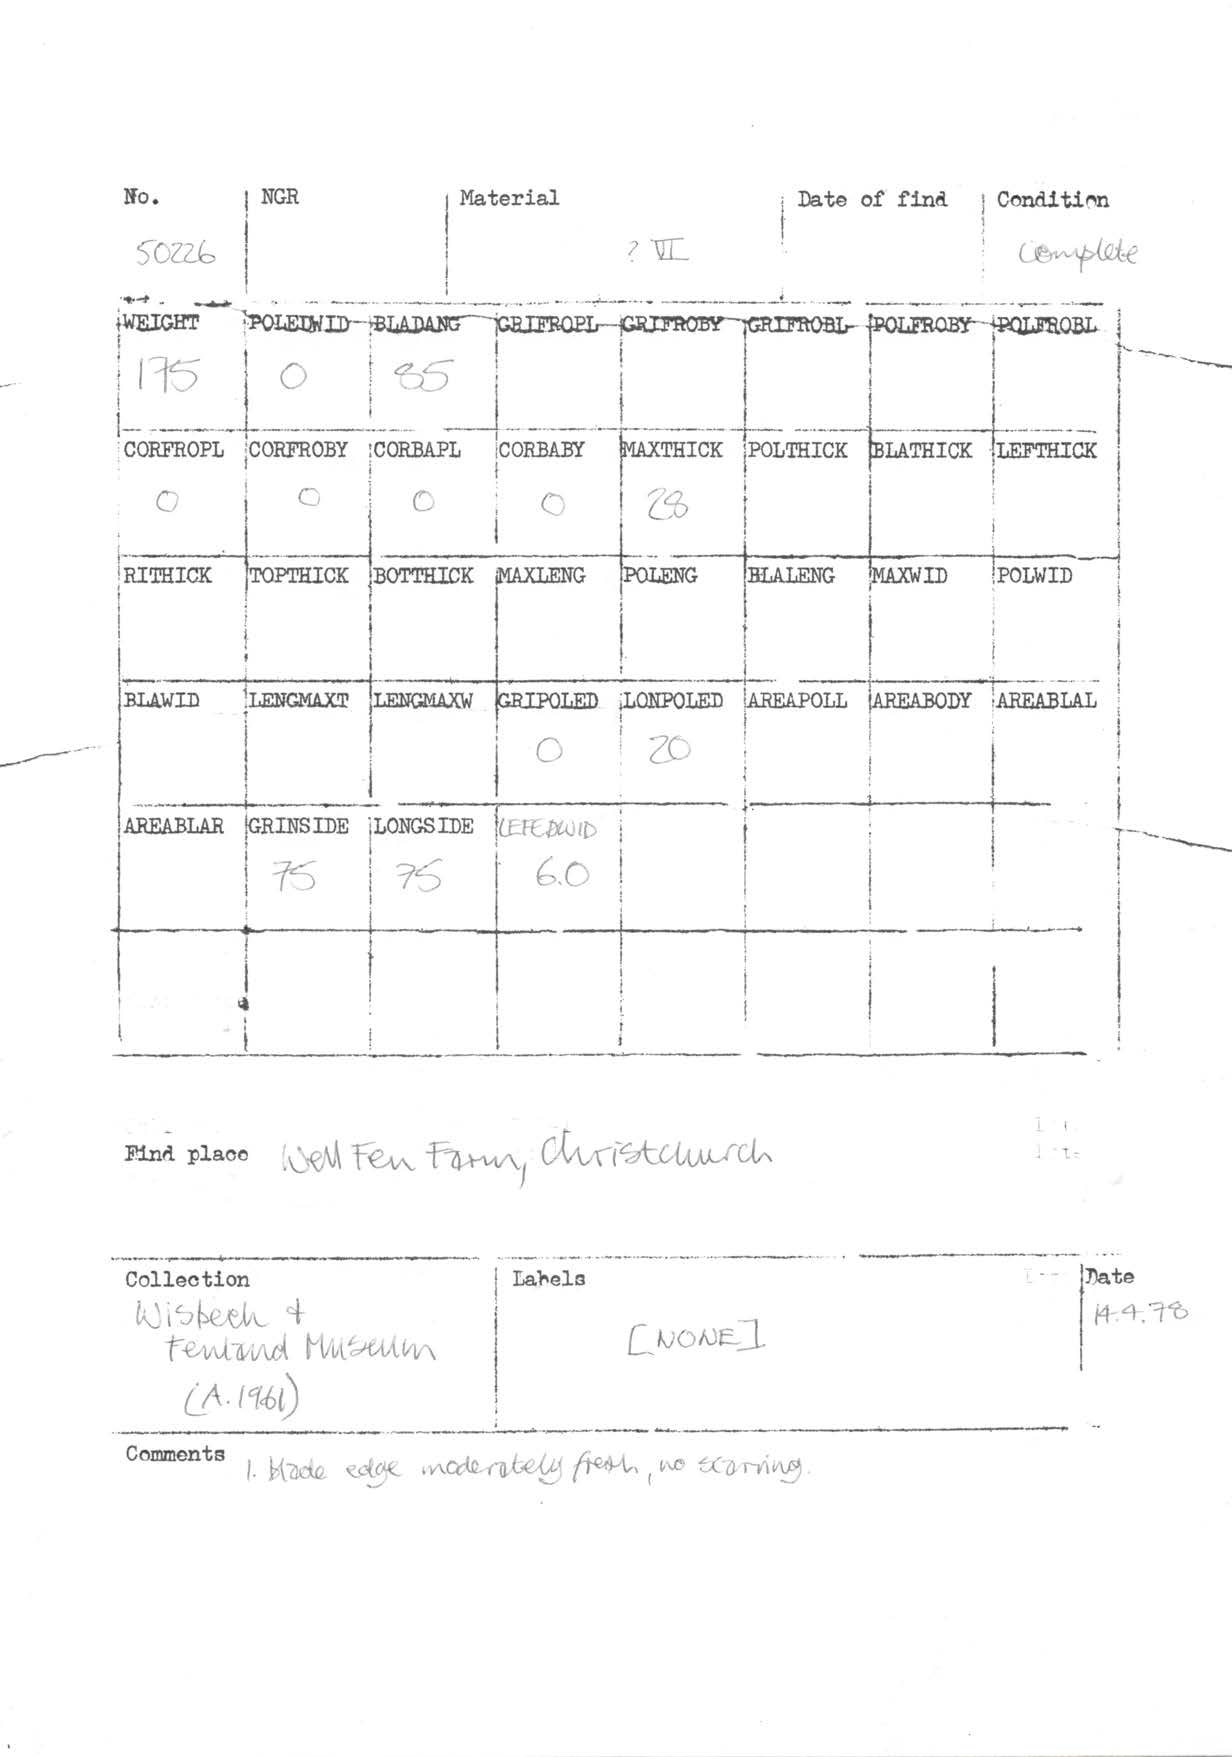 No. NGR Material Date of find Condition
50226 ? VI Complete
WEIGHT POLEDWID BLADANG GRIFROPL GRIFROBY GRIFROBL POLFROBY POLFROBL
175 0 85
CORFROPL CORFROBY CORBAPL CORBABY MAXTHICK POLTHICK BLATHICK LEFTHICK
0 0 0 0 28
RITHICK TOPTHICK BOTTHICK MAXLENG POLENG BLALENG MAXWID POLWID
BLAWID LENGMAXT LENGMAXW GRIPOLED LONPOLED AREAPOLL AREABODY AREABLAL
0 20
AREABLAR GRINSIDE LONGSIDE LEFEDWID
75 75 6.0
Find place Well Fen Farm, Christchurch
Collection Labels Date
Wisbech & 14.4.78
Fenland Museum [NONE]
(A.1961)
Comments 1. blade edge moderately fresh, no scarring.